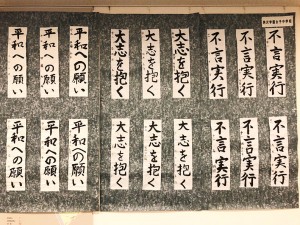 不言実行
不言実行
不言実行
大志を抱く
大志を抱く
大志を抱く
平和への願い
平和への願い
平和への願い
不言実行
不言実行
不言実行
大志を抱く
大志を抱く
大志を抱く
平和への願い
平和への願い
平和への願い